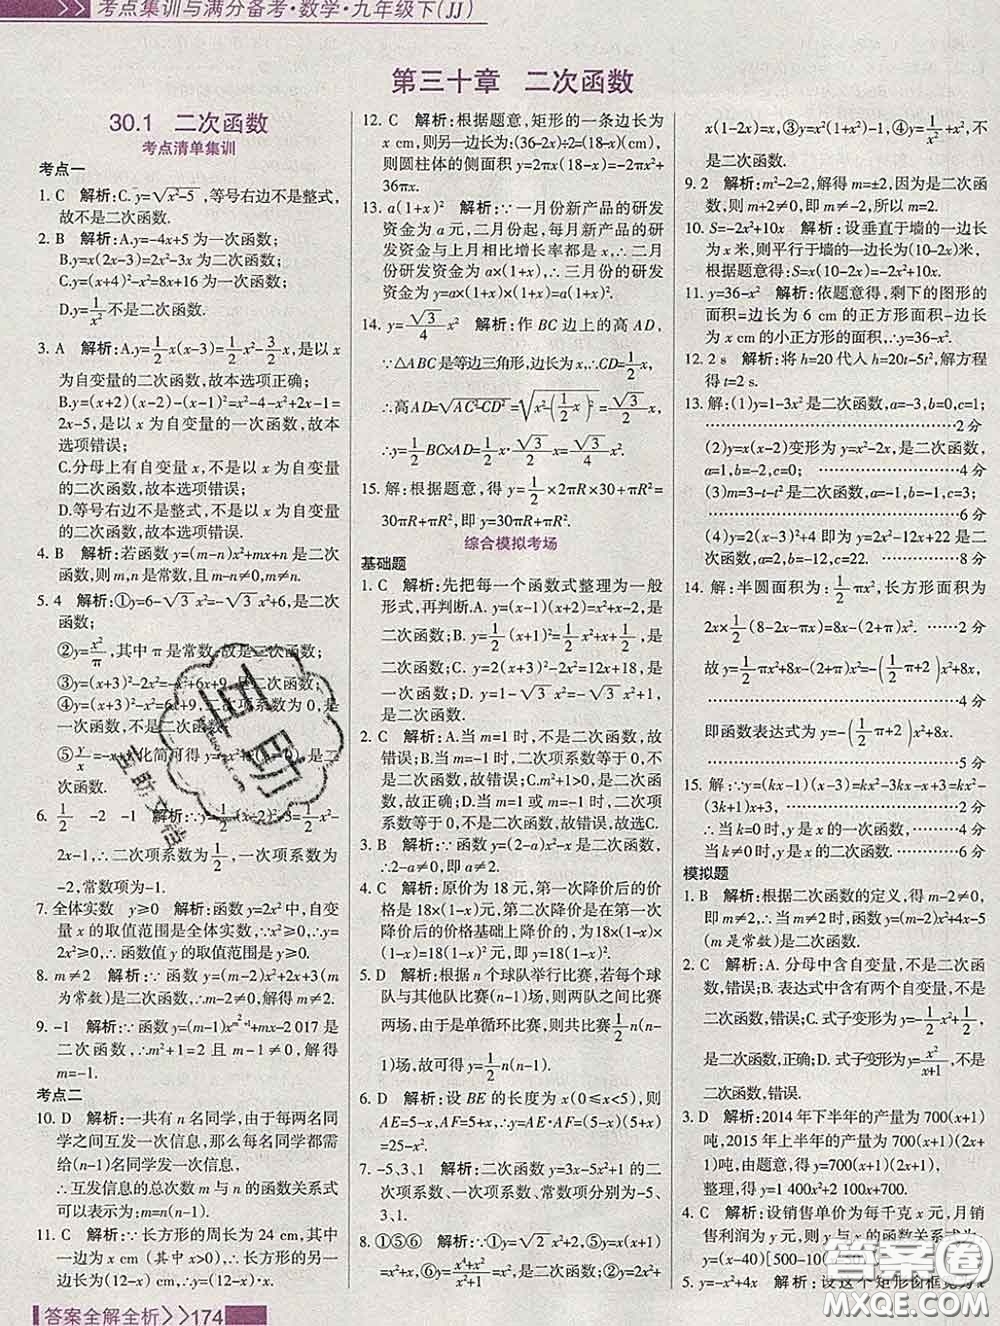 考点集训与满分备考·数学·九年级下(JJ)
第三十章 二次函数
30.1 二次函数
考点清单集训
考点一
1. C 解析:C. y=√(x²-5) ,等号右边不是整式,
故不是二次函数.
2. B 解析:A.y=-4x+5 为一次函数;
B.y=x(2x-3)=2x²-3x 为二次函数;
C.y=(x+4)²-x²=8x+16 为一次函数;
D.y=1/x² 不是二次函数.
3. A 解析:A.y=1/2 x(x-3)=1/2 x²-3/2 x,是以 x
为自变量的二次函数,故本选项正确;
B.y=(x+2)(x-2)-(x-1)²=x²-4-x²+2x-1=
2x-5,是以 x 为自变量的一次函数,故本
选项错误;
C.分母上有自变量 x,不是以 x 为自变量
的二次函数,故本选项错误;
D.等号右边不是整式,不是以 x 为自变量
的二次函数,故本选项错误.
4. B 解析:若函数 y=(m-n)x²+mx+n 是二次
函数,则 m,n 是常数,且 m≠n.
5. 4 解析:①y=6-√3 x²=-√3 x²+6,是二次
函数;
②y=x²/π,其中 π 是常数,故是二次函数;
③y=(x+3)²-2x²=-x²+6x+9,是二次函数;
④y=(x+3)²-x²=6x+9,二次项系数为 0,是
一次函数,不是二次函数;
⑤ y/x=-x,化简可得 是
二次函数.
6. 1/2 -2 -1 解析:∵y=1/2 =1/2 x²-
2x-1,∴二次项系数为1/2,一次项系数为
-2,常数项为-1.
7. 全体实数 y≥0 解析:函数 y=2x² 中,自变
量 x 的取值范围是全体实数,∵x²≥0,∴y=
2x²≥0,∴函数值 y 的取值范围是 y≥0.
8. m≠2 解析:∵函数 y=(m-2)x²+2x+3(m
为常数)是二次函数,∴m-2≠0,解得 m≠2.
9. -1 解析:∵函数 y=(m-1)x^(m²+1)+mx-2 017 是
二次函数,∴m²+1=2 且 m-1≠0,解得
m=-1.
考点二
10. D 解析:一共有 n 名同学,由于每两名同
学之间互发一次信息,那么每名同学都需
给(n-1)名同学发一次信息,
∴互发信息的总次数 m 与 n 的函数关系式
可以表示为:m=n(n-1).
11. C 解析:∵长方形的周长为 24 cm,其中
一边为 x cm (其中 x>0),∴长方形的另一
边长为(12-x) cm,∴y=(12-x)·x.
12. C 解析:根据题意,矩形的一条边长为
x cm,则另一边长为:(36-2x)÷2=(18-x)(cm),
则圆柱体的侧面积 y=2πx(18-x)=-2πx²+
36πx.
13. a(1+x)² 解析:∵一月份新产品的研发
资金为 a 元,二月份起,每月新产品的研
发资金与上月相比增长率都是 x,∴二月
份研发资金为 a×(1+x),∴三月份的研发
资金为 y=a×(1+x)×(1+x)=a(1+x)².
14. y=√3/4 x² 解析:作 BC 边上的高 AD,
∵△ABC 是等边三角形,边长为 x,∴CD=1/2 x,
∴高AD=√(AC²-CD²)=√(x²-(1/2 x)²)=√3/2 x,
∴y=1/2 BC×AD=1/2 x×√3/2 x=√3/4 x².
15. 解:根据题意,得 y=1/2×2πR×30+πR²=
30πR+πR²,即 y=30πR+πR².
综合模拟考场
基础题
1. C 解析:先把每一个函数式整理为一般
形式,再判断.A. y=(x-1)(x+2)=x²+x-2,是
二次函数;B. y=1/2 (x+1)²=1/2 x²+x+1/2,是二
次函数;C. y=2(x+3)²-2x²=12x+18,是一
次函数;D. y=1-√3 x²=-√3 x²+1,
是二次函数.
2. C 解析:A.当 m=1 时,不是二次函数,故
错误;B.当 m=-1 时,二次项系数等于 0,
不是二次函数,故错误;C.m²+1>0,是二次函
数,故正确;D.当 m=1 或 m=-1 时,二次项
系数等于 0,不是二次函数,故错误,故选C.
3. B 解析:∵函数 y=(2-a)x²-x 是二次函数,
∴2-a≠0,即 a≠2.
4. C 解析:原价为 18 元,第一次降价后的价
格是 18×(1-x)元,第二次降价是在第一次
降价后的价格基础上降价的,为 18×(1-x)
×(1-x)=18(1-x)²元,即 y=18(1-x)².
5. D 解析:根据 n 个球队举行比赛,若每个球
队与其他队比赛(n-1)场,则两队之间比赛
两场,由于是单循环比赛,则共比赛1/2 n(n-
1)场,故可得 y=1/2 n(n-1).
6. D 解析:设 BE 的长度为 x(0≤x<5),则
AE=5-x,AF=5+x,∴y=AE·AF=(5-x)(5+x)
=25-x².
7. -5、3、1 解析:二次函数 y=3x-5x²+1 的二
次项系数、一次项系数、常数项分别为-5、
3、1.
8. ①⑤⑥ 解析:∵①y=√2 x²+2;②y=
x(1-2x)=x,③y=x²(1+x²)-1,④y=1/x²+x²,不
是二次函数.
9. 2 解析:m²-2=2,解得 m=±2,因为是二次函
数,则 m+2≠0,即 m≠-2,所以 m=2.
10. S=-2x²+10x 解析:设垂直于墙的一边长
为 x 米,则平行于墙的一边长为(10-2x)米,
根据题意得:S=x(10-2x)=-2x²+10x.
11. y=36-x² 解析:依题意得,剩下的图形的
面积=边长为 6 cm 的正方形面积-边长为
x cm 的小正方形的面积,∴y=36-x².
12. 2 s 解析:将 h=20 代入 h=20t-5t²,解方程
得 t=2 s.
13. 解:(1)y=1-3x² 是二次函数,a=-3,b=0,c=1;
…………2分
(2)y=x(x-2)变形为 y=x²-2x,是二次函数,
a=1,b=-2,c=0; …………4分
(3)m=3-t-t² 是二次函数,a=-1,b=-1,c=3;
…………6分
(4)y=2(x-3)²+4 即为 y=2x²-12x+22 是二
次函数,a=2,b=-12,c=22. …………8分
14. 解:半圆面积为:1/2 πx²,长方形面积为
2x×1/2(8-2x-πx)=8x-(2+π)x², …………2分
故 y=1/2 πx²+8x-(2+π)x²=-(1/2 π+2)x²+8x,
…………4分
即函数表达式为 y=-(1/2 π+2)x²+8x.
…………5分
15. 解:∵y=kx²(x-1)+x²-kx³-3kx+3=kx²-
(3k-1)x+3, …………4分
∴当 k=0 时,y 是 x 的一次函数, …………4分
当 k≠0 时,y 是 x 的二次函数. …………6分
模拟题
1. B 解析:根据二次函数的定义,得 m-2≠0,
即 m≠2,∴当 m≠2 时,函数 y=(m-2)x²+4x-5
(m 是常数)是二次函数.
2. C 解析:A. 分母中含自变量,不是二次函
数,错误;B. 表达式中含有两个自变量,不是
二次函数,错误;C. 式子变形为 ,
是二次函数,正确;D. 式子变形为 y=x²/(x+1),不是
二次函数,错误.
3. D 解析:2014 年下半年的产量为 700(x+1)
吨,2015 年上半年的产量为 700(x+1)(2x+
1)吨,由题意,得 y=700(x+1)(2x+1),
整理,得 y=1 400x²+2 100x+700.
4. C 解析:设销售单价为每千克 x 元,月销
售利润为 y 元,则 y 与 x 的函数关系式为
y=(x-40)[500-10(
5. y=-x²+4x 解析:设这个矩形窗框宽为 x
答案全解全析>>174
答案圈
MXQE.COM